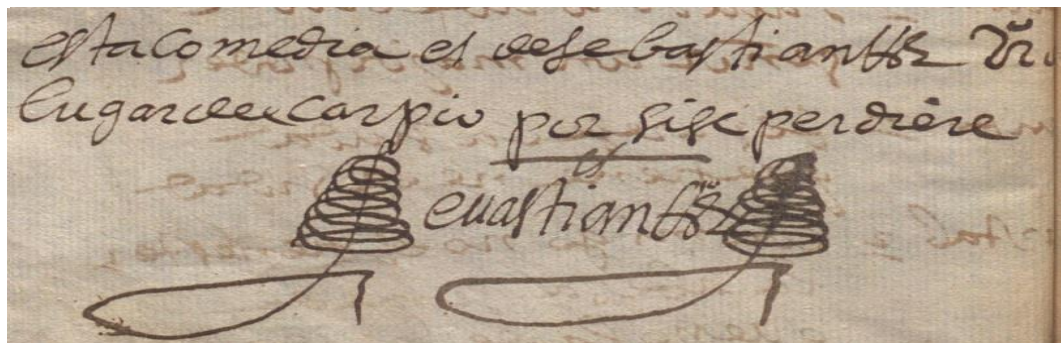 esta comedia es de sebastian frrz Vº
lugar del carpio por si se perdiere
sevastian frrz